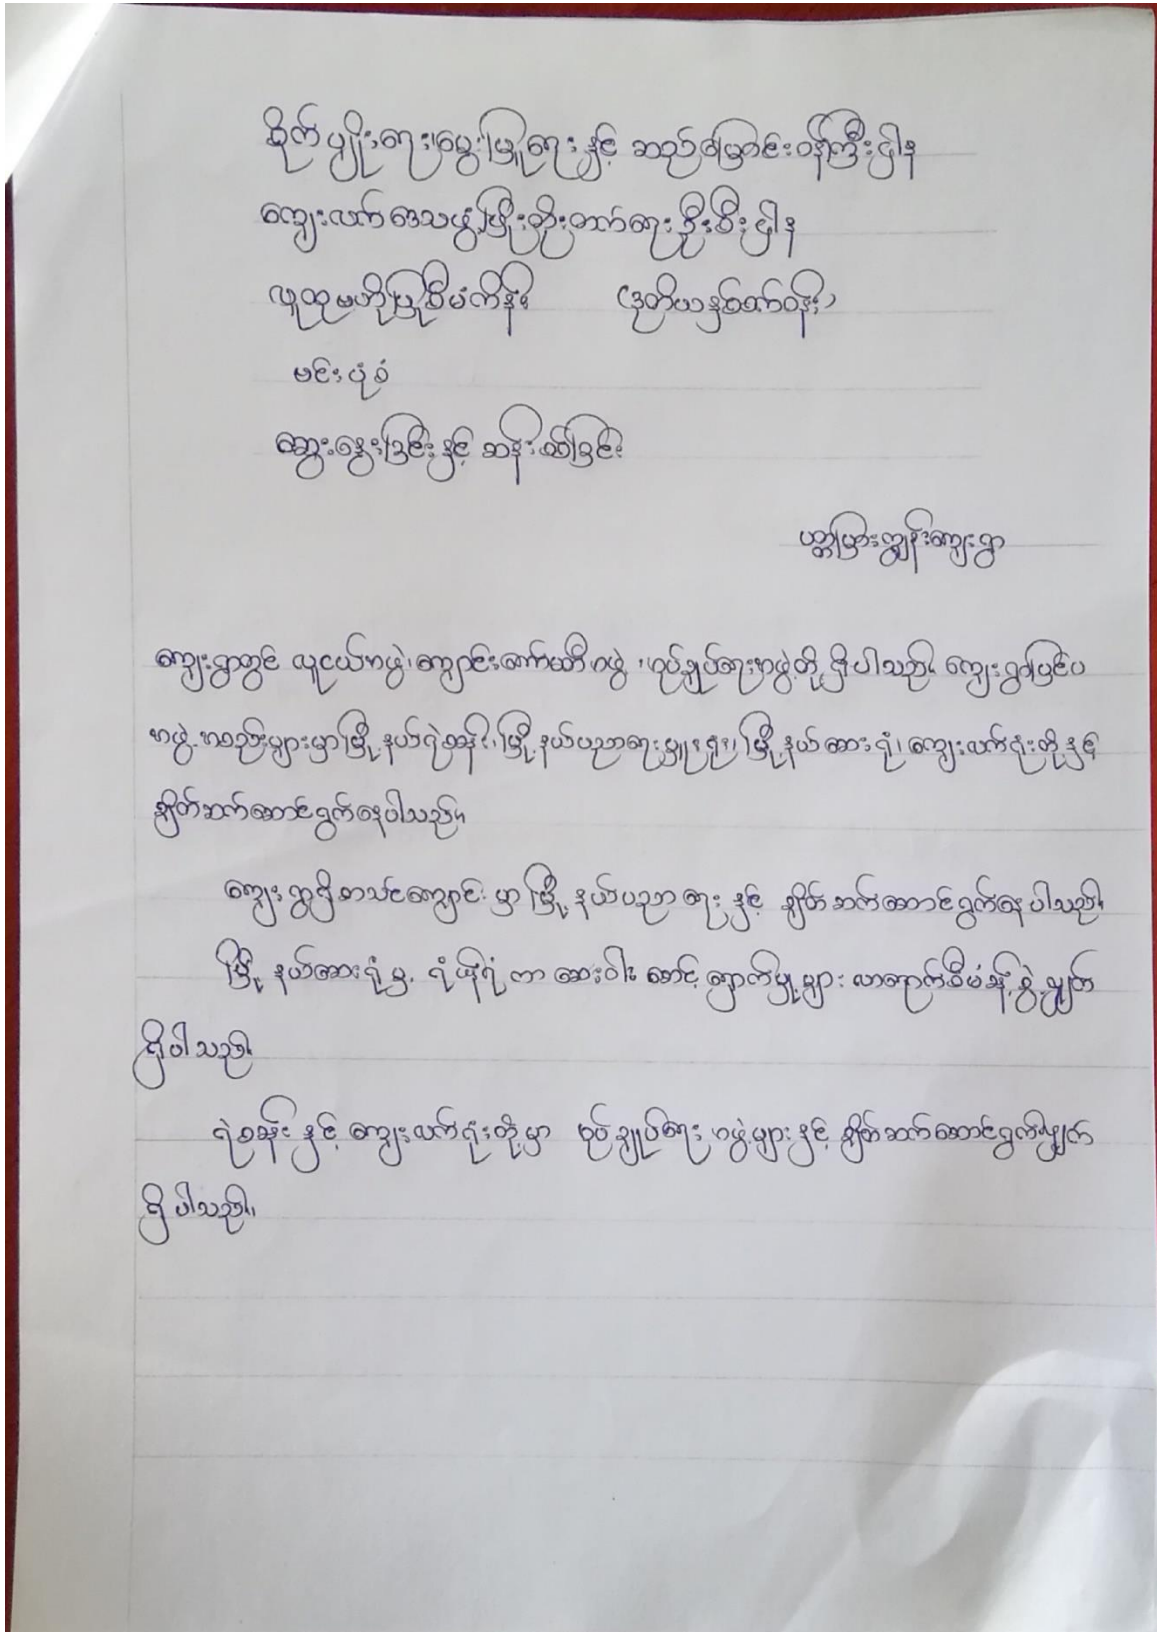 စိုက်ပျိုးရေး၊မွေးမြူရေးနှင့် ဆည်မြောင်းဝန်ကြီးဌာန
ကျေးလက်ဒေသဖွံ့ဖြိုးတိုးတက်ရေးဦးစီးဌာန
လူထုဗဟိုပြုစီမံကိန်း (ဒုတိယနှစ်ဝက်ဝန်း)
ဗင်းပုံစံ
ဆွေးနွေးခြင်းနှင့် ဆန်းစစ်ခြင်း
ကျွန်းကျေးရွာ
ကျေးရွာတွင် လူငယ်အဖွဲ့၊ကျောင်းကော်မတီအဖွဲ့ ၊အုပ်ချုပ်ရေးအဖွဲ့တို့ရှိပါသည်။ ကျေးရွာပြင်ပ
အဖွဲ့အစည်းများမှာမြို့နယ်ရဲစခန်း၊မြို့နယ်ပညာရေးမှူးရုံး၊မြို့နယ်ဆေးရုံ၊ကျေးလက်ရုံးတို့နှင့်
ချိတ်ဆက်ဆောင်ရွက်နေပါသည်။
ကျေးရွာရှိစာသင်ကျောင်းမှာ မြို့နယ်ပညာရေးနှင့် ချိတ်ဆက်ဆောင်ရွက်နေပါသည်။
မြို့နယ်ဆေးရုံမှ ရံဖန်ရံကာ ဆေးဝါး စောင့်ရှောက်မှု့များ လာရောက်စီမံခန့်ခွဲလျှက်
ရှိပါသည်။
ရဲစခန်းနှင့် ကျေးလက်ရုံးတို့မှာ အုပ်ချုပ်ရေးအဖွဲ့များနှင့် ချိတ်ဆက်ဆောင်ရွက်လျှက်
ရှိပါသည်။